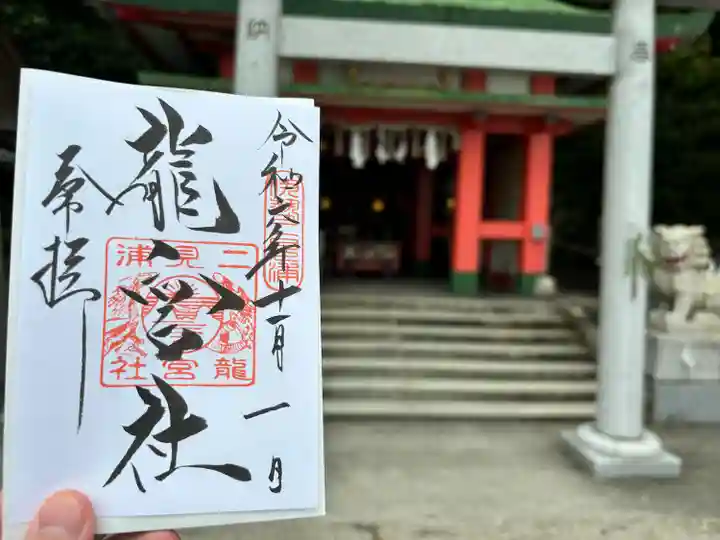 令和六年十一月一日
龍宮社
奉拝
二見浦
龍宮社
納